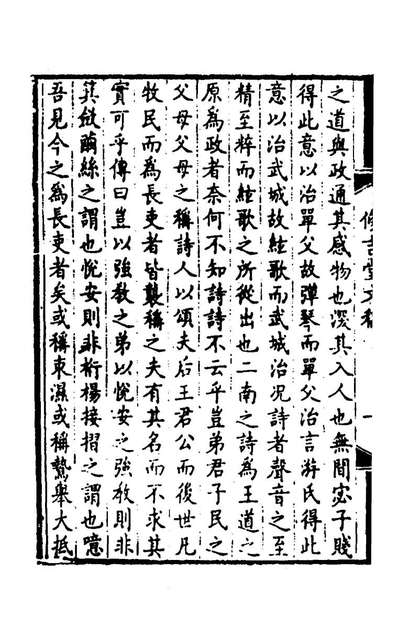 之道與政通其感物也深其入人也無間宓子賤
得此意以治單父故彈琴而單父治言游氏得此
意以治武城故絃歌而武城治况詩者聲音之至
精至粹而絃歌之所從出也二南之詩為王道之
原為政者奈何不知詩詩不云乎豈弟君子民之
父母父母之稱詩人以頌夫后王君公而後世凡
牧民而為長吏者皆襲稱之夫有其名而不求其
實可乎傳曰豈以強教之弟以悅安之強教則非
箕斂繭絲之謂也悅安則非桁楊接摺之謂也噫
吾見今之為長吏者矣或稱束濕或稱鷙舉大抵